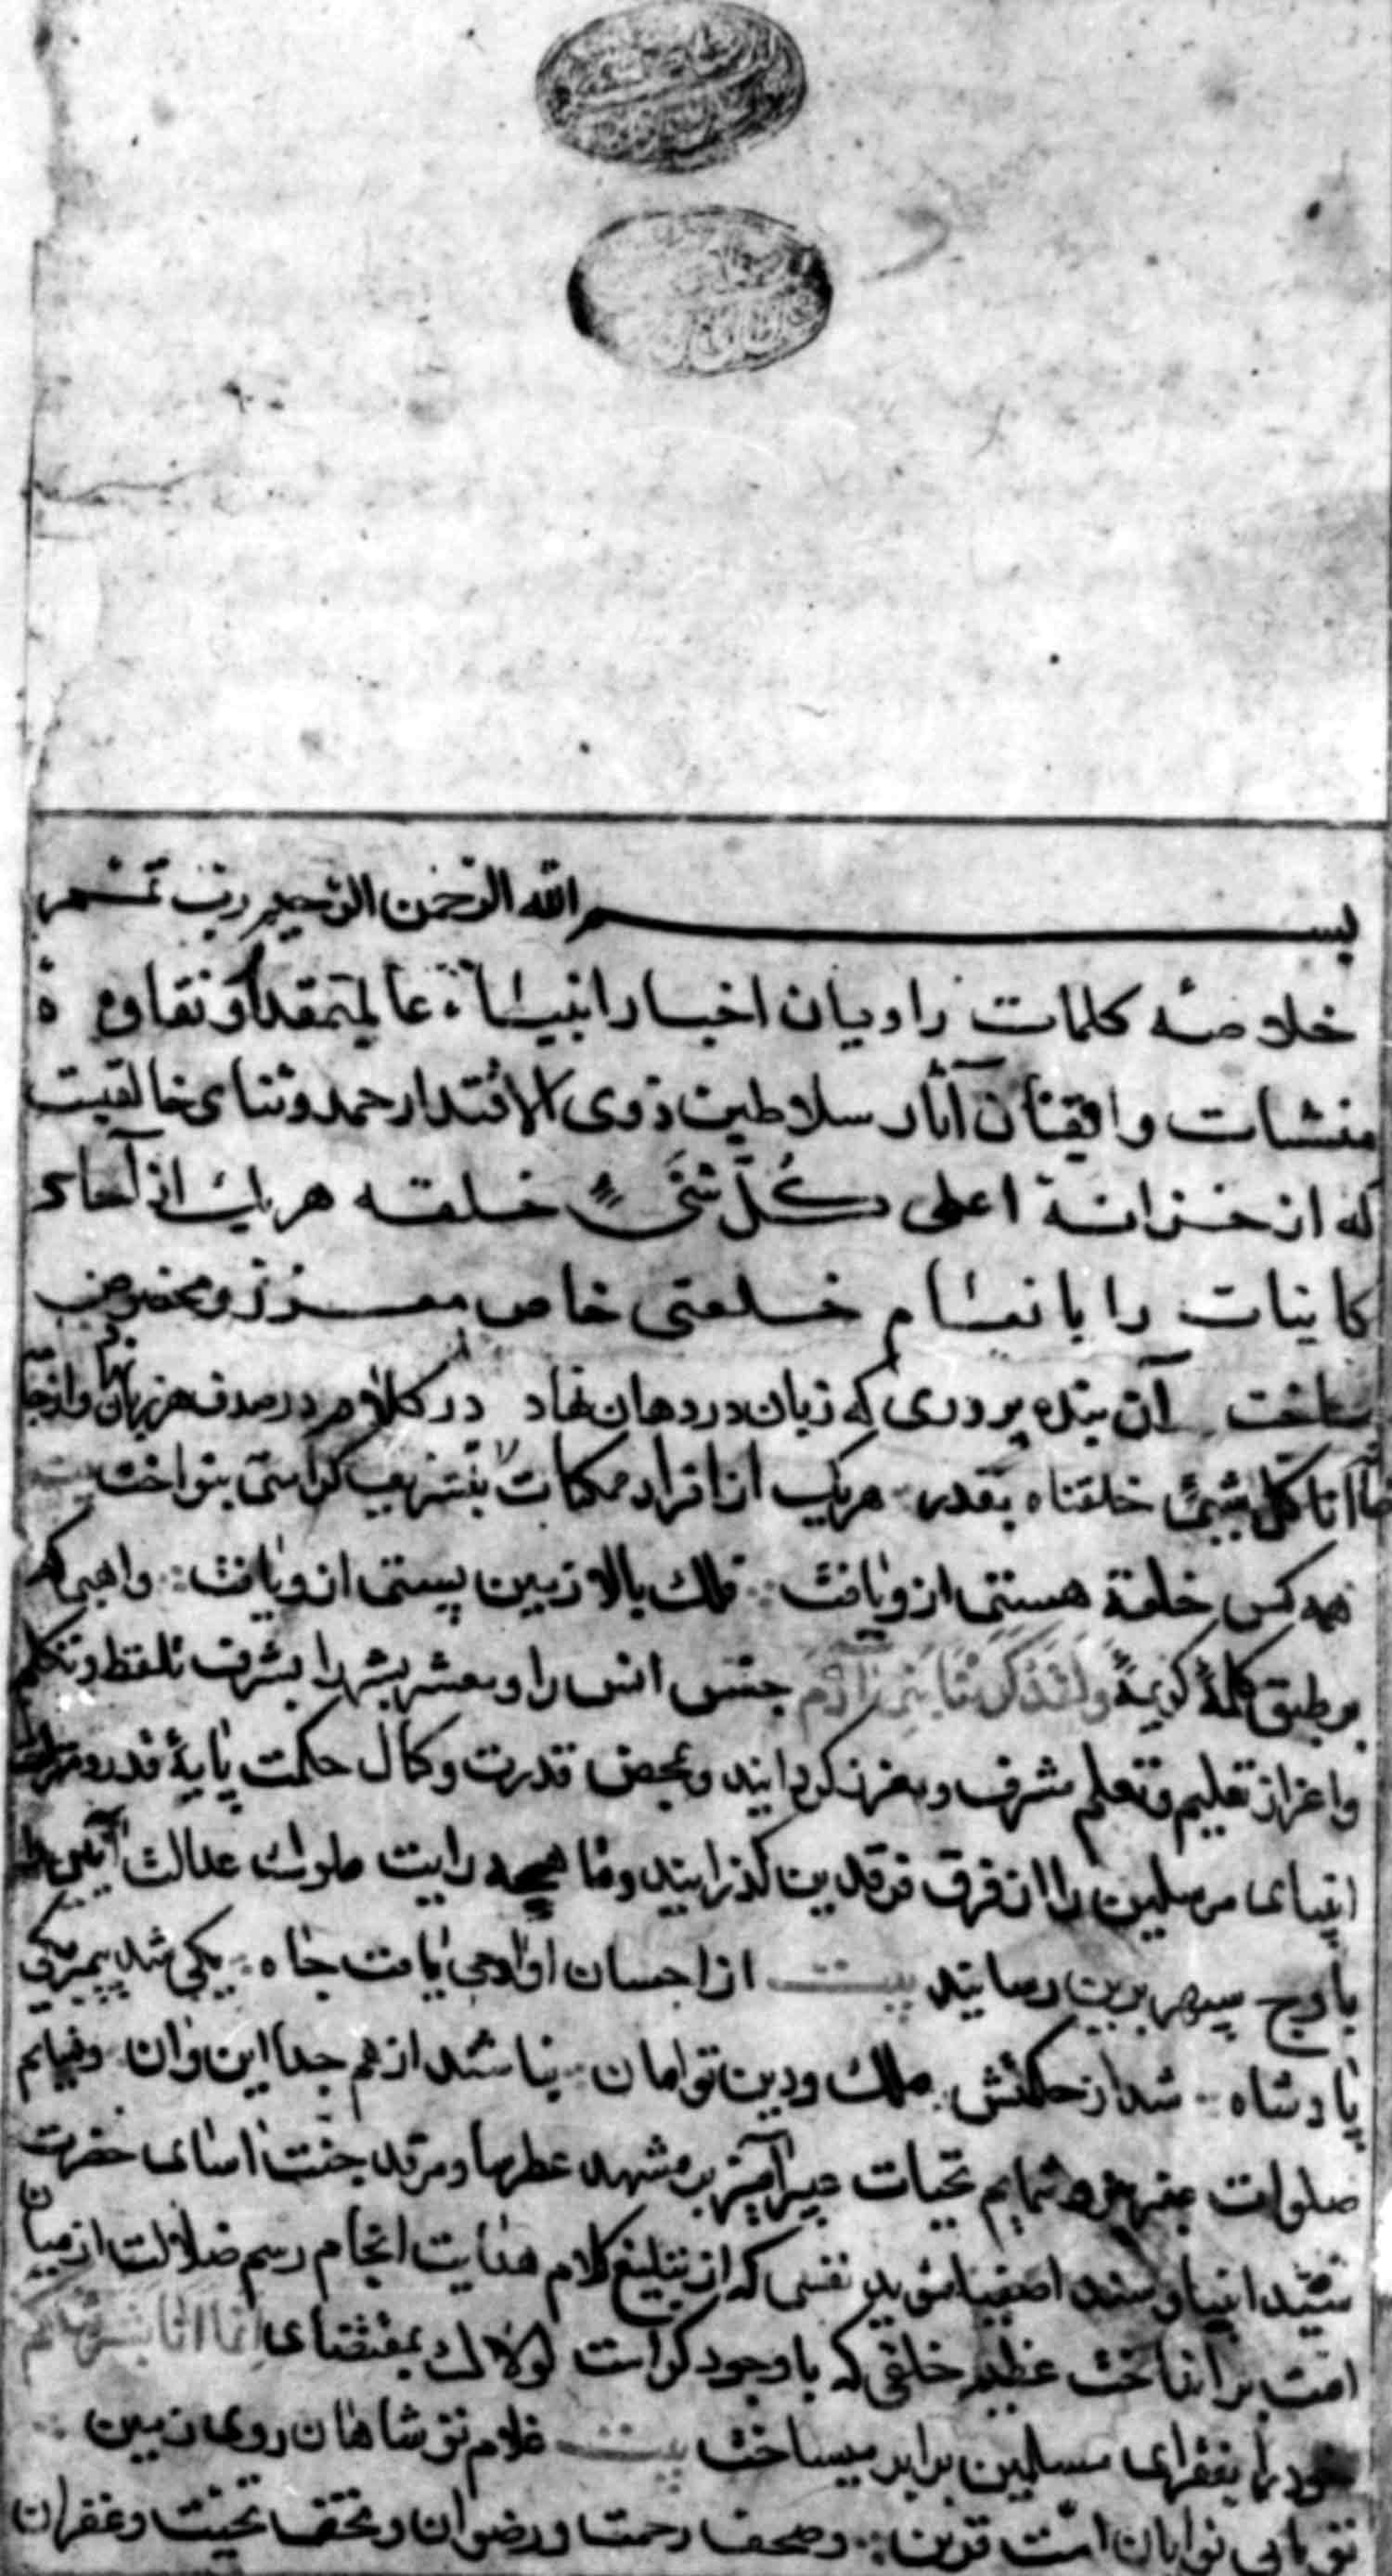 بسم الله الرحمن الرحیم رب تمم
خلاصهٔ کلمات راویان اخبار انبیاء عالیمقدار و نقاوهٔ
منشات واقفان آثار سلاطین ذوی الاقتدار حمد و ثنای خالقیت
که از خزانهٔ اعلی کل شیء خلقه هر یک از آحاد
کاینات را بانعام خلعتی خاص معزز و مخصوص
ساخت آن بنده پروری که زبان در دهان نهاد در کلام در صدف هر زبان
انا کل شیئ خلقناه بقدر هر یک از افراد ممکنات بتشریف کرامتی بنواخت بیت
همه کس خلعة هستی ازو یافت فلک بالا زمین پستی ازو یافت واهبی که
بر طبق کلمهٔ کریمهٔ ولقد کرمنا بنی آدم جنس انس را و معشر بشر را بشرف تلفظ و تکلم
و اعزاز تعلیم و تعلم مشرف و معزز کردانید و بمحض قدرت و کمال حکمت پایهٔ قدر و
انبیای مرسلین را از فرق فرقدین کذرانید و ماهیچه رایت ملوک عدالت آیین را
باوج سپهر برین رسانید بیت از احسان او آدمی یافت جاه یکی شد پیمبر یکی
پادشاه شد از حکمتش ملک و دین توامان نباشد از هم جدا این و آن
صلوات و شمایم تحیات عبیر آمیز بر مشهد عطرسا و مرقد جنت اسای حضرت
سید انبیا و سند اصفیا نفسی که از تبلیغ کلام هدایت انجام رسم ضلالت از میان
امت برانداخت عظیم خلقی که با وجود کرامت لولاک بمقتضای انما انا بشر مثلکم
خود را بفقرای مسلمین برابر میساخت بیت غلام تو شاهان روی زمین
امت قرین و صحف رحمت و رضوان و تحف تحیت و غفران